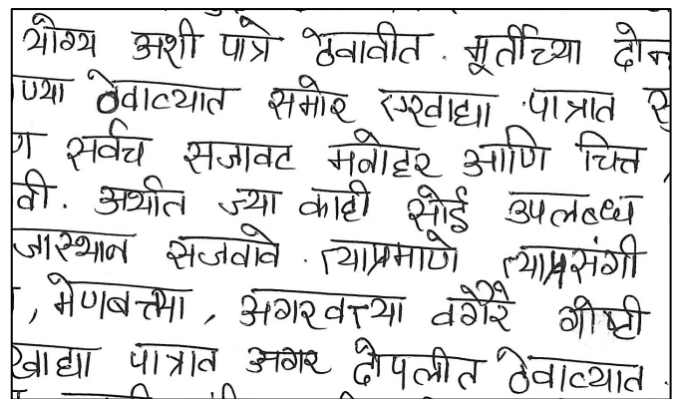 योग्य अशी पात्रे ठेवावीत. मूर्तीच्या दोन
ण्या ठेवाव्यात समोर एखाद्या पात्रात
सर्वच सजावट मनोहर आणि चित्त
वी. अर्थात ज्या काही सोई उपलब्ध
जास्थान सजवावे. त्याप्रमाणे त्याप्रसंगी
, मेणबत्त्या, अगरबत्त्या वगैरे गोष्टी
खाद्या पात्रात अगर टोपलीत ठेवाव्यात.